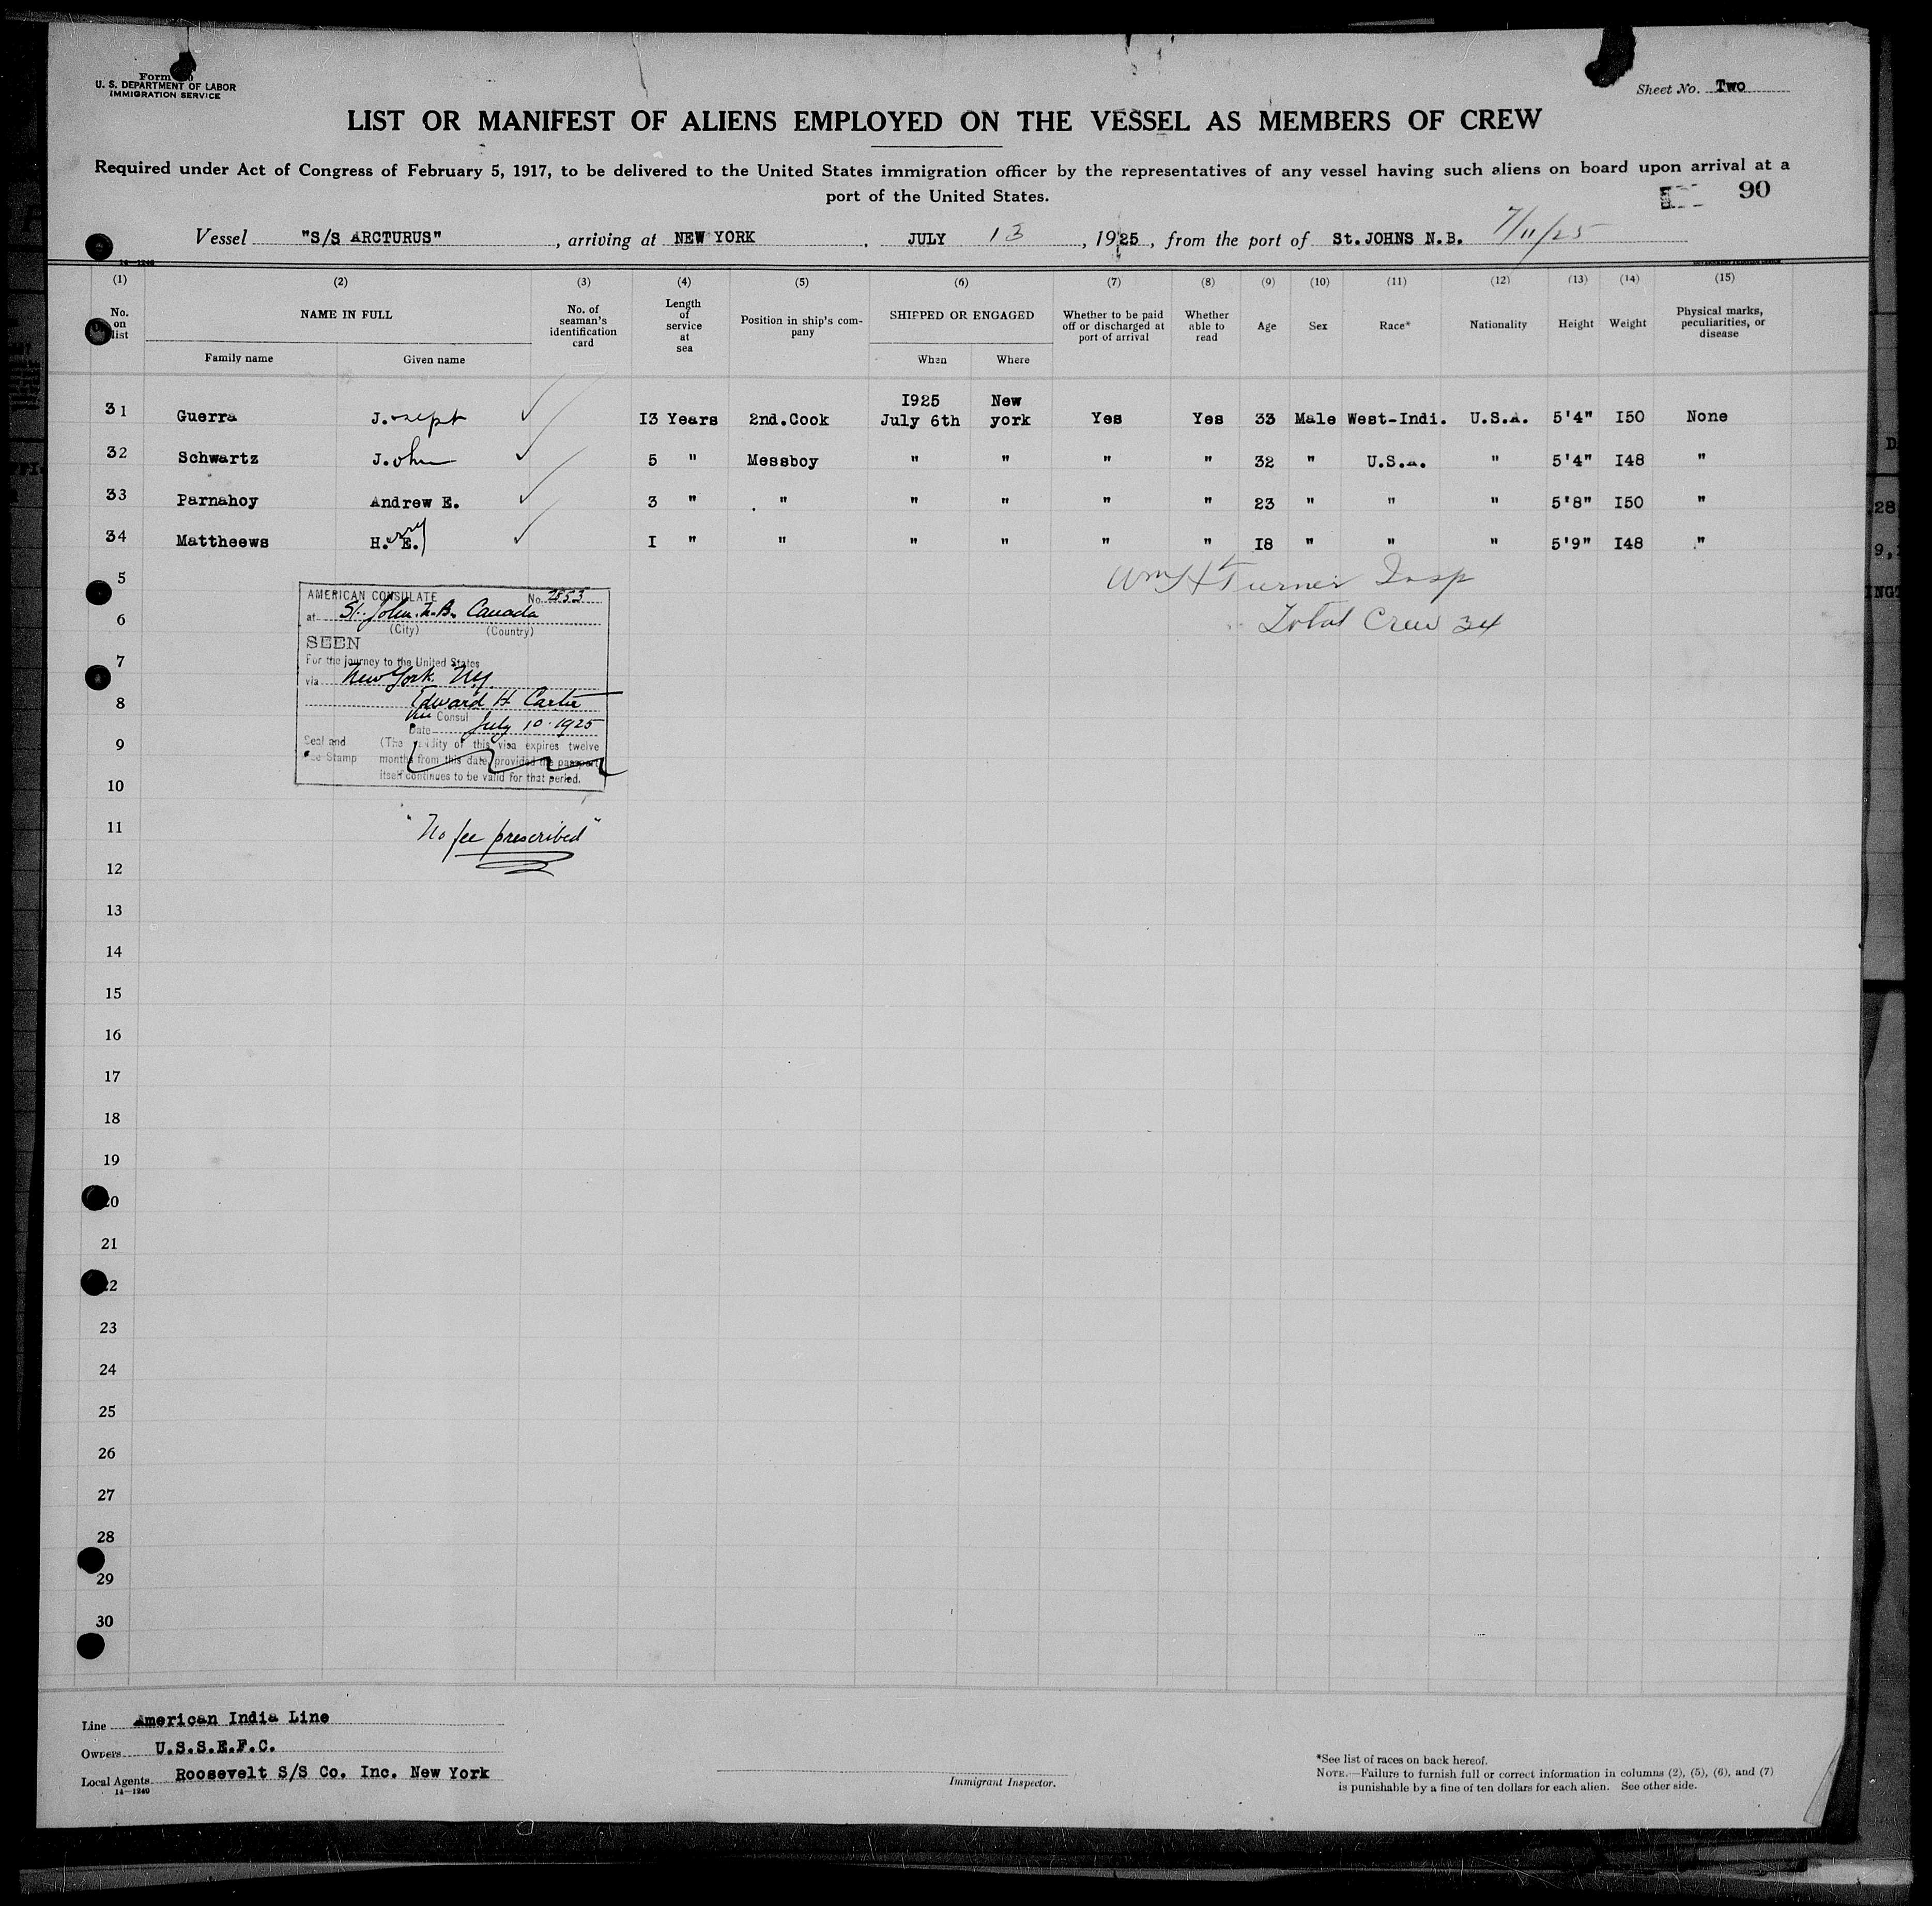 Form
U. S. DEPARTMENT OF LABOR
IMMIGRATION SERVICE
Sheet No. Two
LIST OR MANIFEST OF ALIENS EMPLOYED ON THE VESSEL AS MEMBERS OF CREW
Required under Act of Congress of February 5, 1917, to be delivered to the United States immigration officer by the representatives of any vessel having such aliens on board upon arrival at a
port of the United States.
90
Vessel "S/S ARCTURUS", arriving at NEW YORK, JULY 13, 1925, from the port of St.JOHNS N.B. 7/11/25
14—1240
(1) (2) (3) (4) (5) (6) (7) (8) (9) (10) (11) (12) (13) (14) (15)
No. on list
NAME IN FULL
Family name Given name
No. of seaman's identification card
Length of service at sea
Position in ship's company
SHIPPED OR ENGAGED
When Where
Whether to be paid off or discharged at port of arrival
Whether able to read
Age
Sex
Race*
Nationality
Height
Weight
Physical marks, peculiarities, or disease
31 Guerra J.osept 13 Years 2nd.Cook 1925 July 6th New york Yes Yes 33 Male West-Indi. U.S.A. 5'4" 150 None
32 Schwartz J.ohn 5 " Messboy " " " " 32 " U.S.A. " 5'4" 148 "
33 Parnahoy Andrew E. 3 " " " " " " 23 " " " 5'8" 150 "
34 Mattheews H.arry E. 1 " " " " " " 18 " " " 5'9" 148 "
5
Wm H Turner Insp
AMERICAN CONSULATE No. 2853
6
at St. John. N.B. Canada
(City) (Country)
Total Crew 34
SEEN
For the journey to the United States
7
via New York. N.Y.
8
Edward H Carter
Vice Consul
Date July 10. 1925
9
Seal and Fee Stamp
(The validity of this visa expires twelve
months from this date provided the passport
itself continues to be valid for that period.
10
11
"No fee prescribed"
12
13
14
15
16
17
18
19
20
21
22
23
24
25
26
27
28
29
30
Line American India Line
Owners U.S.S.E.F.C.
Local Agents Roosevelt S/S Co. Inc. New York
14—1240
Immigrant Inspector.
*See list of races on back hereof.
NOTE.—Failure to furnish full or correct information in columns (2), (5), (6), and (7)
is punishable by a fine of ten dollars for each alien. See other side.